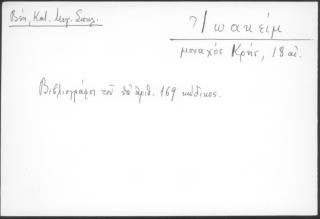 Βέη, Κατ. Μεγ. Σπηλ.
Ἰωακείμ
μοναχός Κρής, 18 αἰ.
Βιβλιογράφος τοῦ ὑπ' ἀριθ. 169 κώδικος.